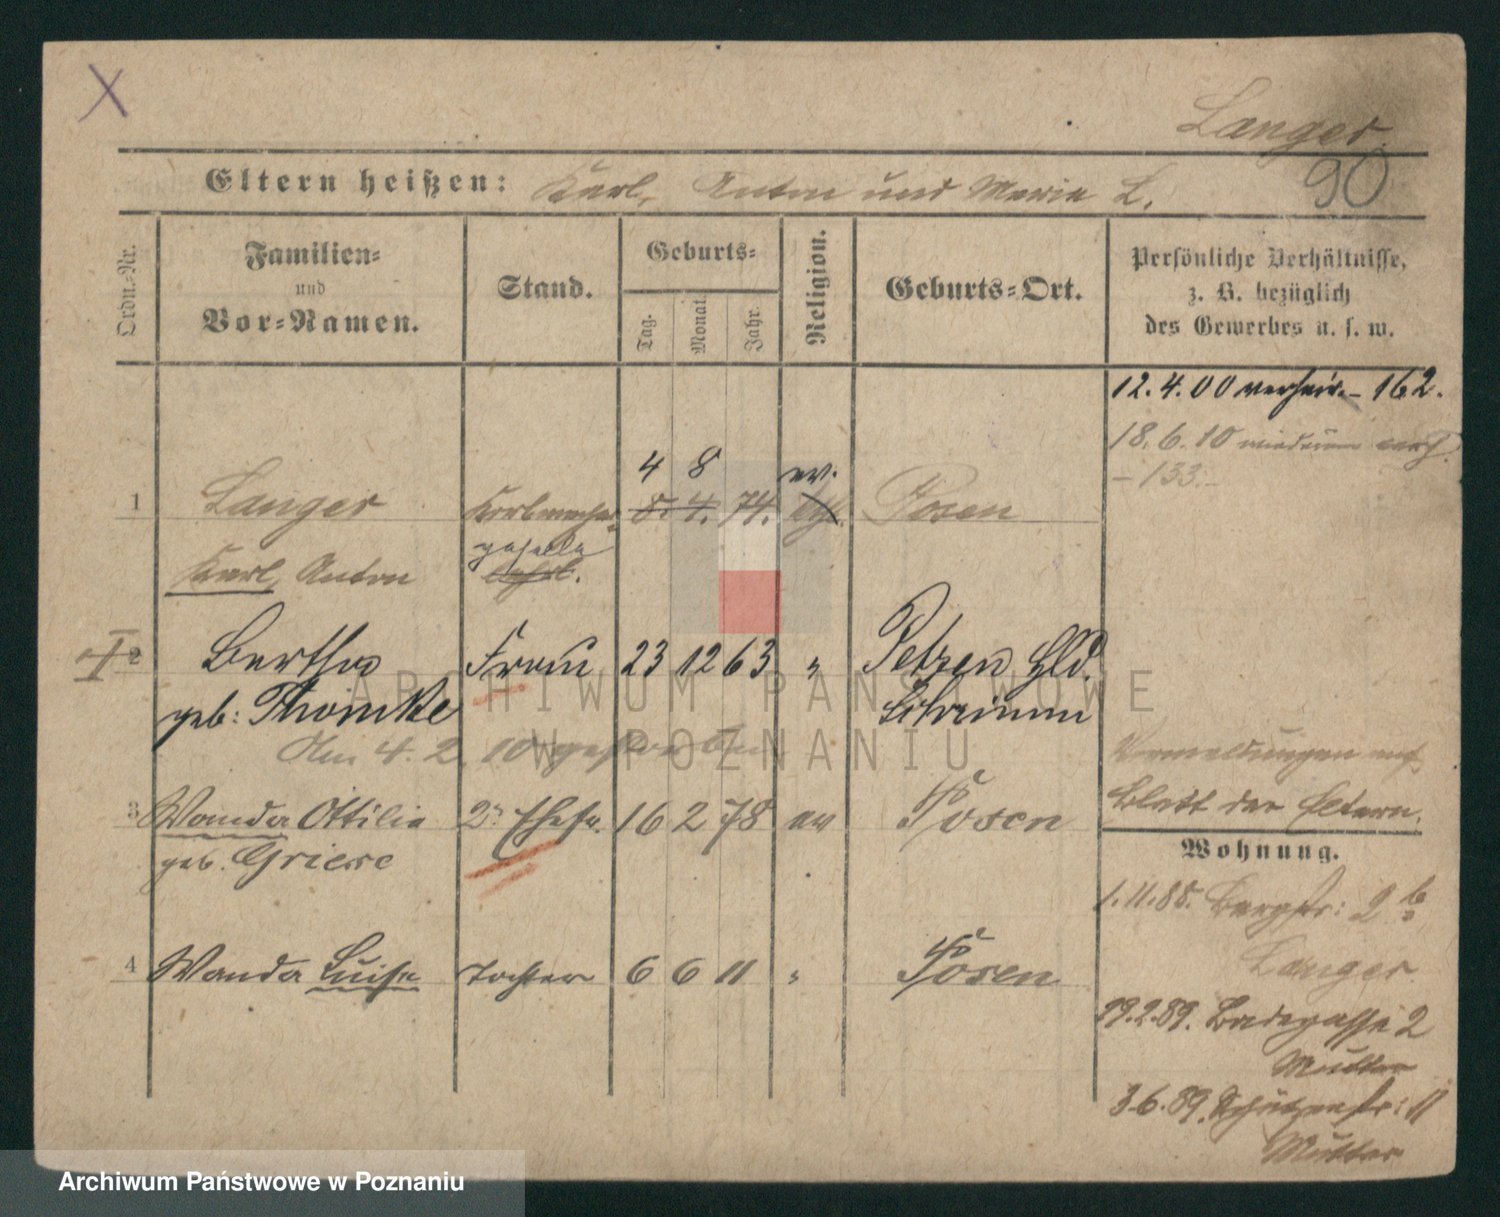 Langer
90
Eltern heißen: Karl, Anton und Maria L.
Ordn.-Nr.
Familien-
und
Vor-Namen.
Stand.
Geburts-
Tag.
Monat.
Jahr.
Religion.
Geburts-Ort.
Persönliche Verhältnisse,
z. B. bezüglich
des Gewerbes u. s. w.
12. 4. 00 verheir. - 162.
18. 6. 10 wiederum verh.
- 133. -
4 8 ev.
1 Langer Korbmacher- 8. 4. 74. kth. Posen
geselle
Karl, Anton lehrl.
I 2 Bertha Frau 23 12 63 " Petzen Gld.
geb: Thomke
Am 4. 2. 10 gestorben
Vermeldungen auf
Blatt der Eltern.
3 Wanda Ottilie 2te Ehefr. 16 2 78 ev Posen
geb. Griese
Wohnung.
1. 11. 88. Bergstr: 2 b
Langer
4 Wanda Luise Tochter 6 6 11 " Posen
29. 2. 89. Badegasse 2
Mutter
3. 6. 89. Schützenstr: 11
Mutter
ARCHIWUM PAŃSTWOWE
W POZNANIU
Archiwum Państwowe w Poznaniu